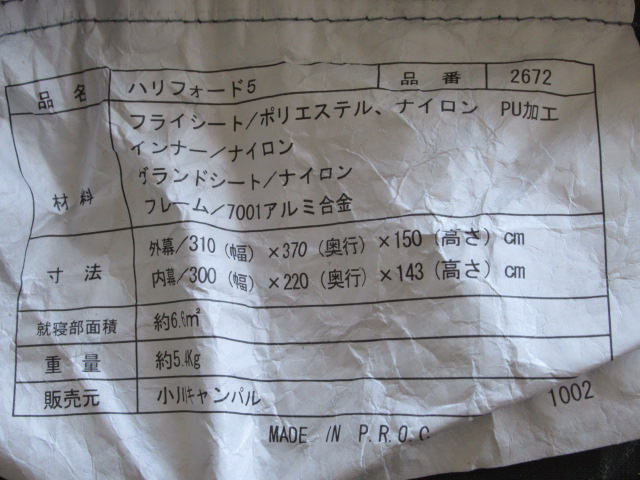 品名 ハリフォード5 品番 2672
材料 フライシート/ポリエステル、ナイロン PU加工
インナー/ナイロン
グランドシート/ナイロン
フレーム/7001アルミ合金
寸法 外幕/310(幅)×370(奥行)×150(高さ)cm
内幕/300(幅)×220(奥行)×143(高さ)cm
就寝部面積 約6.6㎡
重量 約5.4Kg
販売元 小川キャンパル
1002
MADE IN P.R.O.C